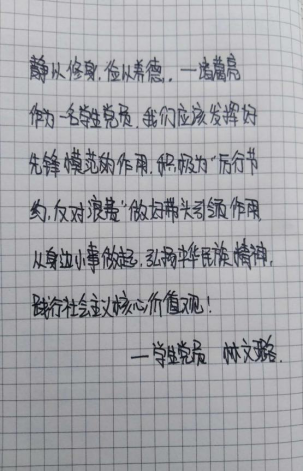 静以修身,俭以养德。—诸葛亮
作为一名学生党员,我们应该发挥好
先锋模范的作用,积极为“厉行节
约,反对浪费”做好带头引领作用,
从身边小事做起,弘扬中华民族精神,
践行社会主义核心价值观!
—学生党员 林文璐